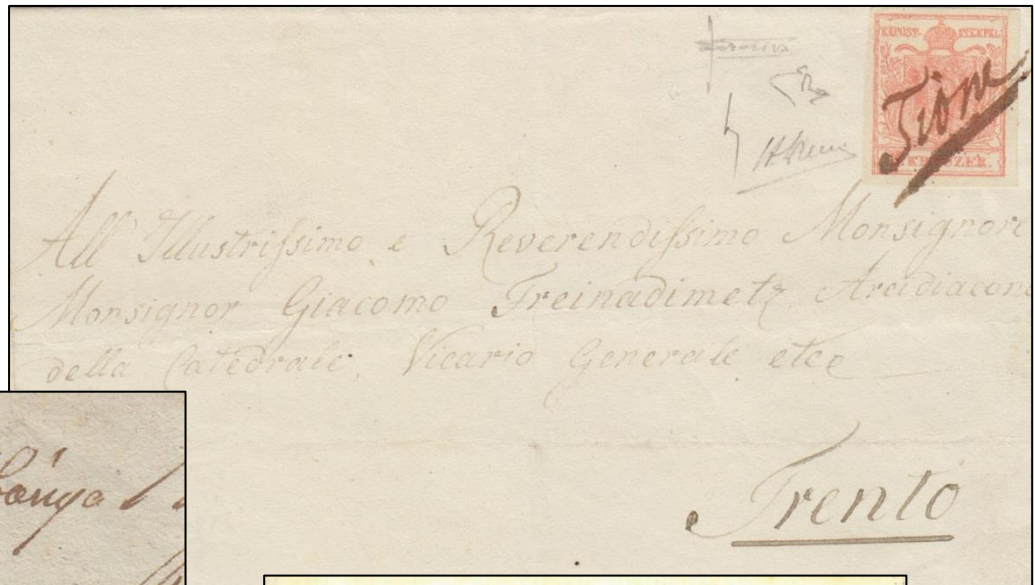 KKPOST-STEMPEL
Tione
KREUZER
All' Illustrissimo e Reverendissimo Monsignore
Monsignor Giacomo Freinadimetz Arcidiacono
della Catedrale. Vicario Generale etcc
Trento